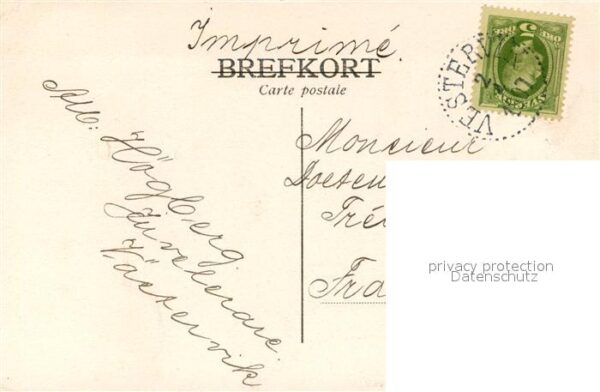 Imprimé.
BREFKORT
Carte postale
Högberg
Juvelerare
Västervik
Monsieur
Fra
5
VESTE
privacy protection
Datenschutz